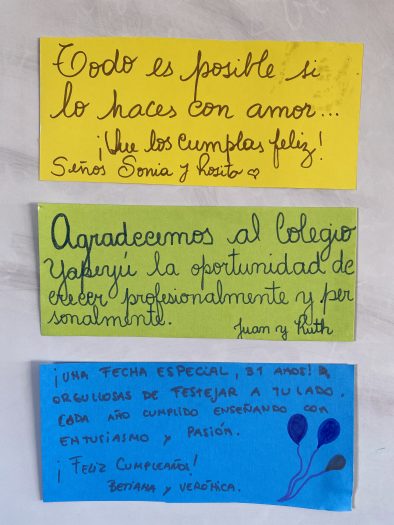 Todo es posible si
lo haces con amor...
¡Que los cumplas feliz!
Seños Sonia y Rosita
Agradecemos al Colegio
Yapeyú la oportunidad de
crecer profesionalmente y per
sonalmente.
Juan y Ruth
¡UNA FECHA ESPECIAL, 31 AÑOS!
ORGULLOSAS DE FESTEJAR A TU LADO.
CADA AÑO CUMPLIDO ENSEÑANDO CON
ENTUSIASMO Y PASIÓN.
¡FELIZ CUMPLEAÑOS!
BETIANA Y VERÓNICA.